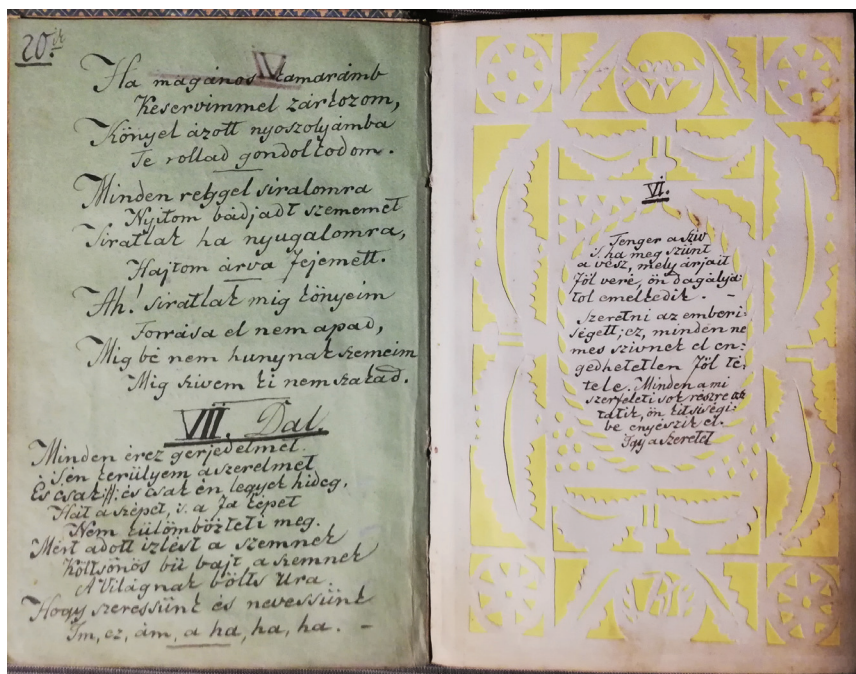 20.ik
IV
Ha magános kamarámb
Keservimmel zárkozom,
Könyel ázott nyoszolyámba
Te rollad gondolkodom.
Minden reggel siralomra
Nyitom bádjadt szememet
Siratlak ha nyugalomra,
Hajtom árva fejemett.
Ah! siratlak mig könyeim
Forrása el nem apad,
Mig bé nem hunynak szemeim
Mig szivem ki nem szakad.
VII. Dal.
Minden érez gerjedelmet.
S én kerülyem a szerelmet
És csak és csak én legyek hideg,
Hát a szépet, s. a fa képet
Nem külömbözteti meg.
Mért adott izlést a szemnek
Költsönös bü bajt a szemnek
A Világnak bölts Ura.
Hogy szeressünk és nevessünk
Im, ez, ám, a ha, ha, ha. –
VI.
Tenger a sziv
S. ha meg szünt
a vész, mely árjait
föl veré, ön dagályja
tol emelkedik. –
Szeretni az emberi-
ségett; ez, minden ne
mes szivnek el en-
gedhetetlen föl té-
tele. Minden ami
szerfeleti sok részre ak
tatik, ön kitsiségi-
be enyészik el.
Igy a szeretet